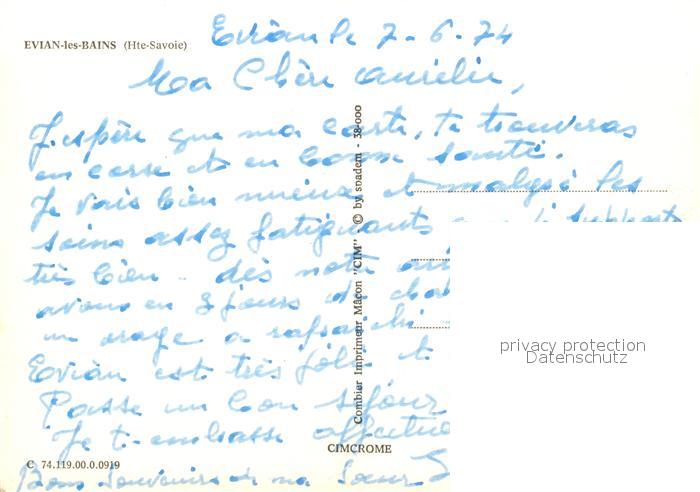 EVIAN-les-BAINS (Hte-Savoie)
Evian le 7-6-74
Ma Chère Aurélie,
J'espère que ma carte, te trouveras
en corse et en bonne santé.
Je vais bien mieux et malgré les
soins assez fatiguants que j'
très bien - dès notre
avons eu 3 jours de
un orage a rafraichi
Evian est très joli et
Passe un bon séjour
Je t-embrasse
Bons Souvenirs de ma Soeur
Combier Imprimeur Mâcon "CIM" - © by spadem - 38-000
CIMCROME
C 74.119.00.0.0919
privacy protection
Datenschutz